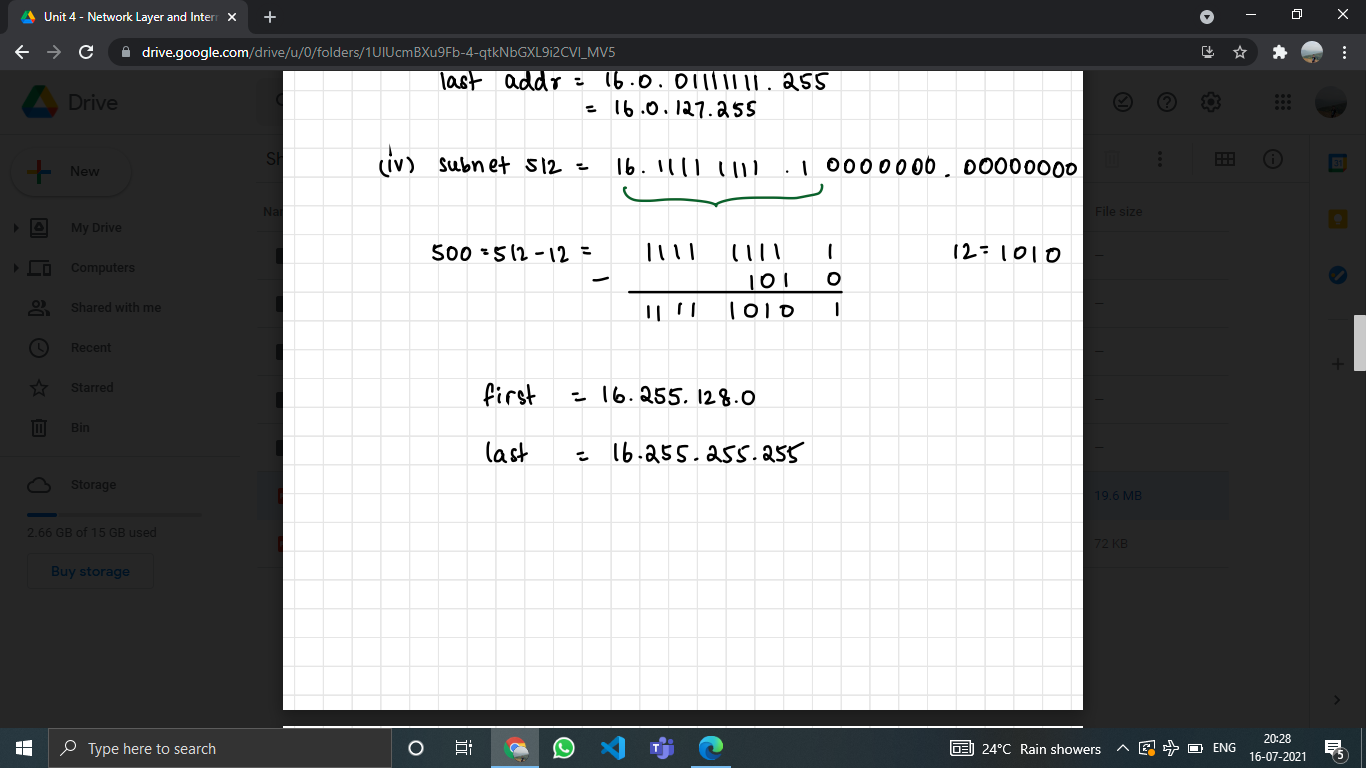 Unit 4 - Network Layer and Intern
drive.google.com/drive/u/0/folders/1UlUcmBXu9Fb-4-qtkNbGXL9i2CVl_MV5
Drive
New
My Drive
Computers
Shared with me
Recent
Starred
Bin
Storage
2.66 GB of 15 GB used
Buy storage
File size
19.6 MB
72 KB
last addr = 16.0.01111111.255
= 16.0.127.255
(iv) subnet 512 = 16.1111 1111 .1 0000000.00000000
500 = 512 - 12 = 1111 1111 1 12 = 1010
- 101 0
1111 1010 1
first = 16.255.128.0
last = 16.255.255.255
Type here to search
24°C Rain showers
ENG
20:28
16-07-2021
5